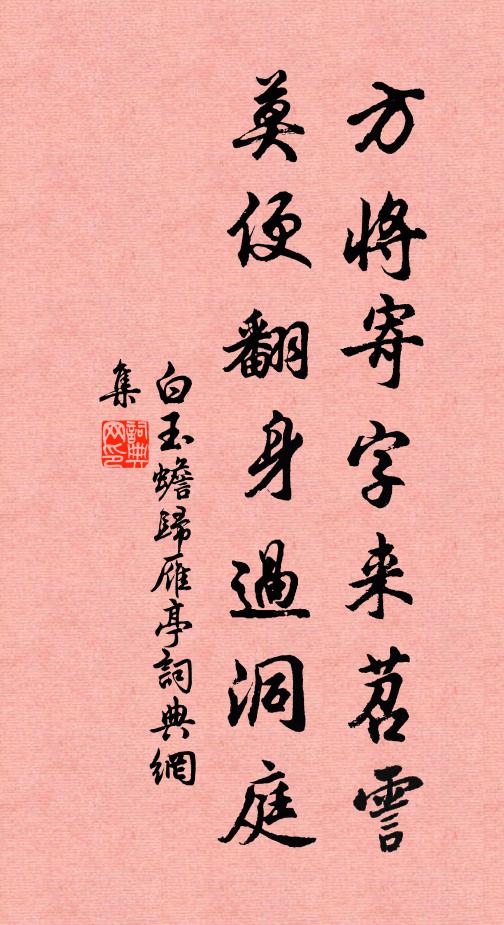 方将寄字来苕霅
莫便翻身過洞庭
白玉蟾歸雁亭詞典網
集
詞典網印